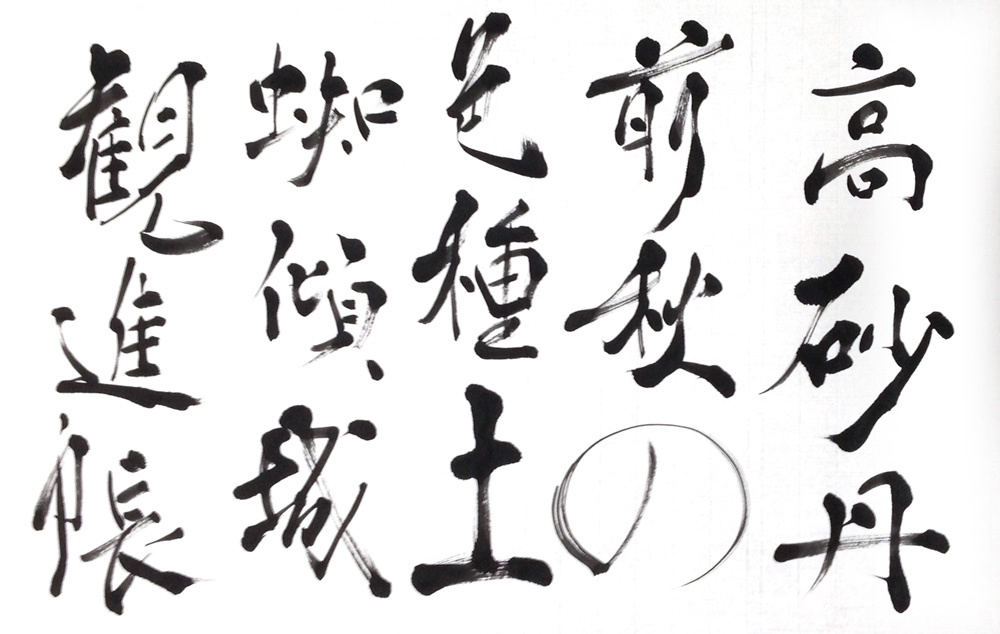 高砂丹
前秋の
色種土
蜘傾城
観進帳